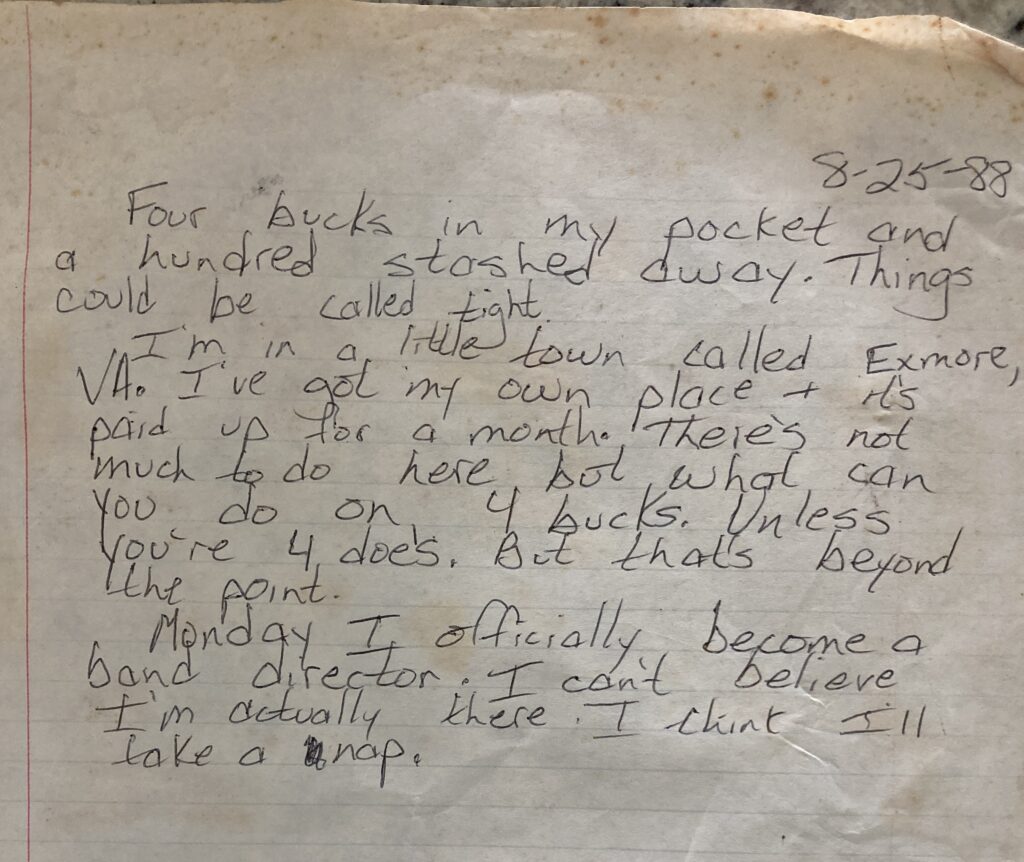 8-25-88
Four bucks in my pocket and
a hundred stashed away. Things
could be called tight.
I'm in a little town called Exmore,
VA. I've got my own place + it's
paid up for a month. There's not
much to do here but what can
you do on 4 bucks. Unless
you're 4 doe's. But that's beyond
the point.
Monday I officially become a
band director. I can't believe
I'm actually there. I think I'll
take a nap.